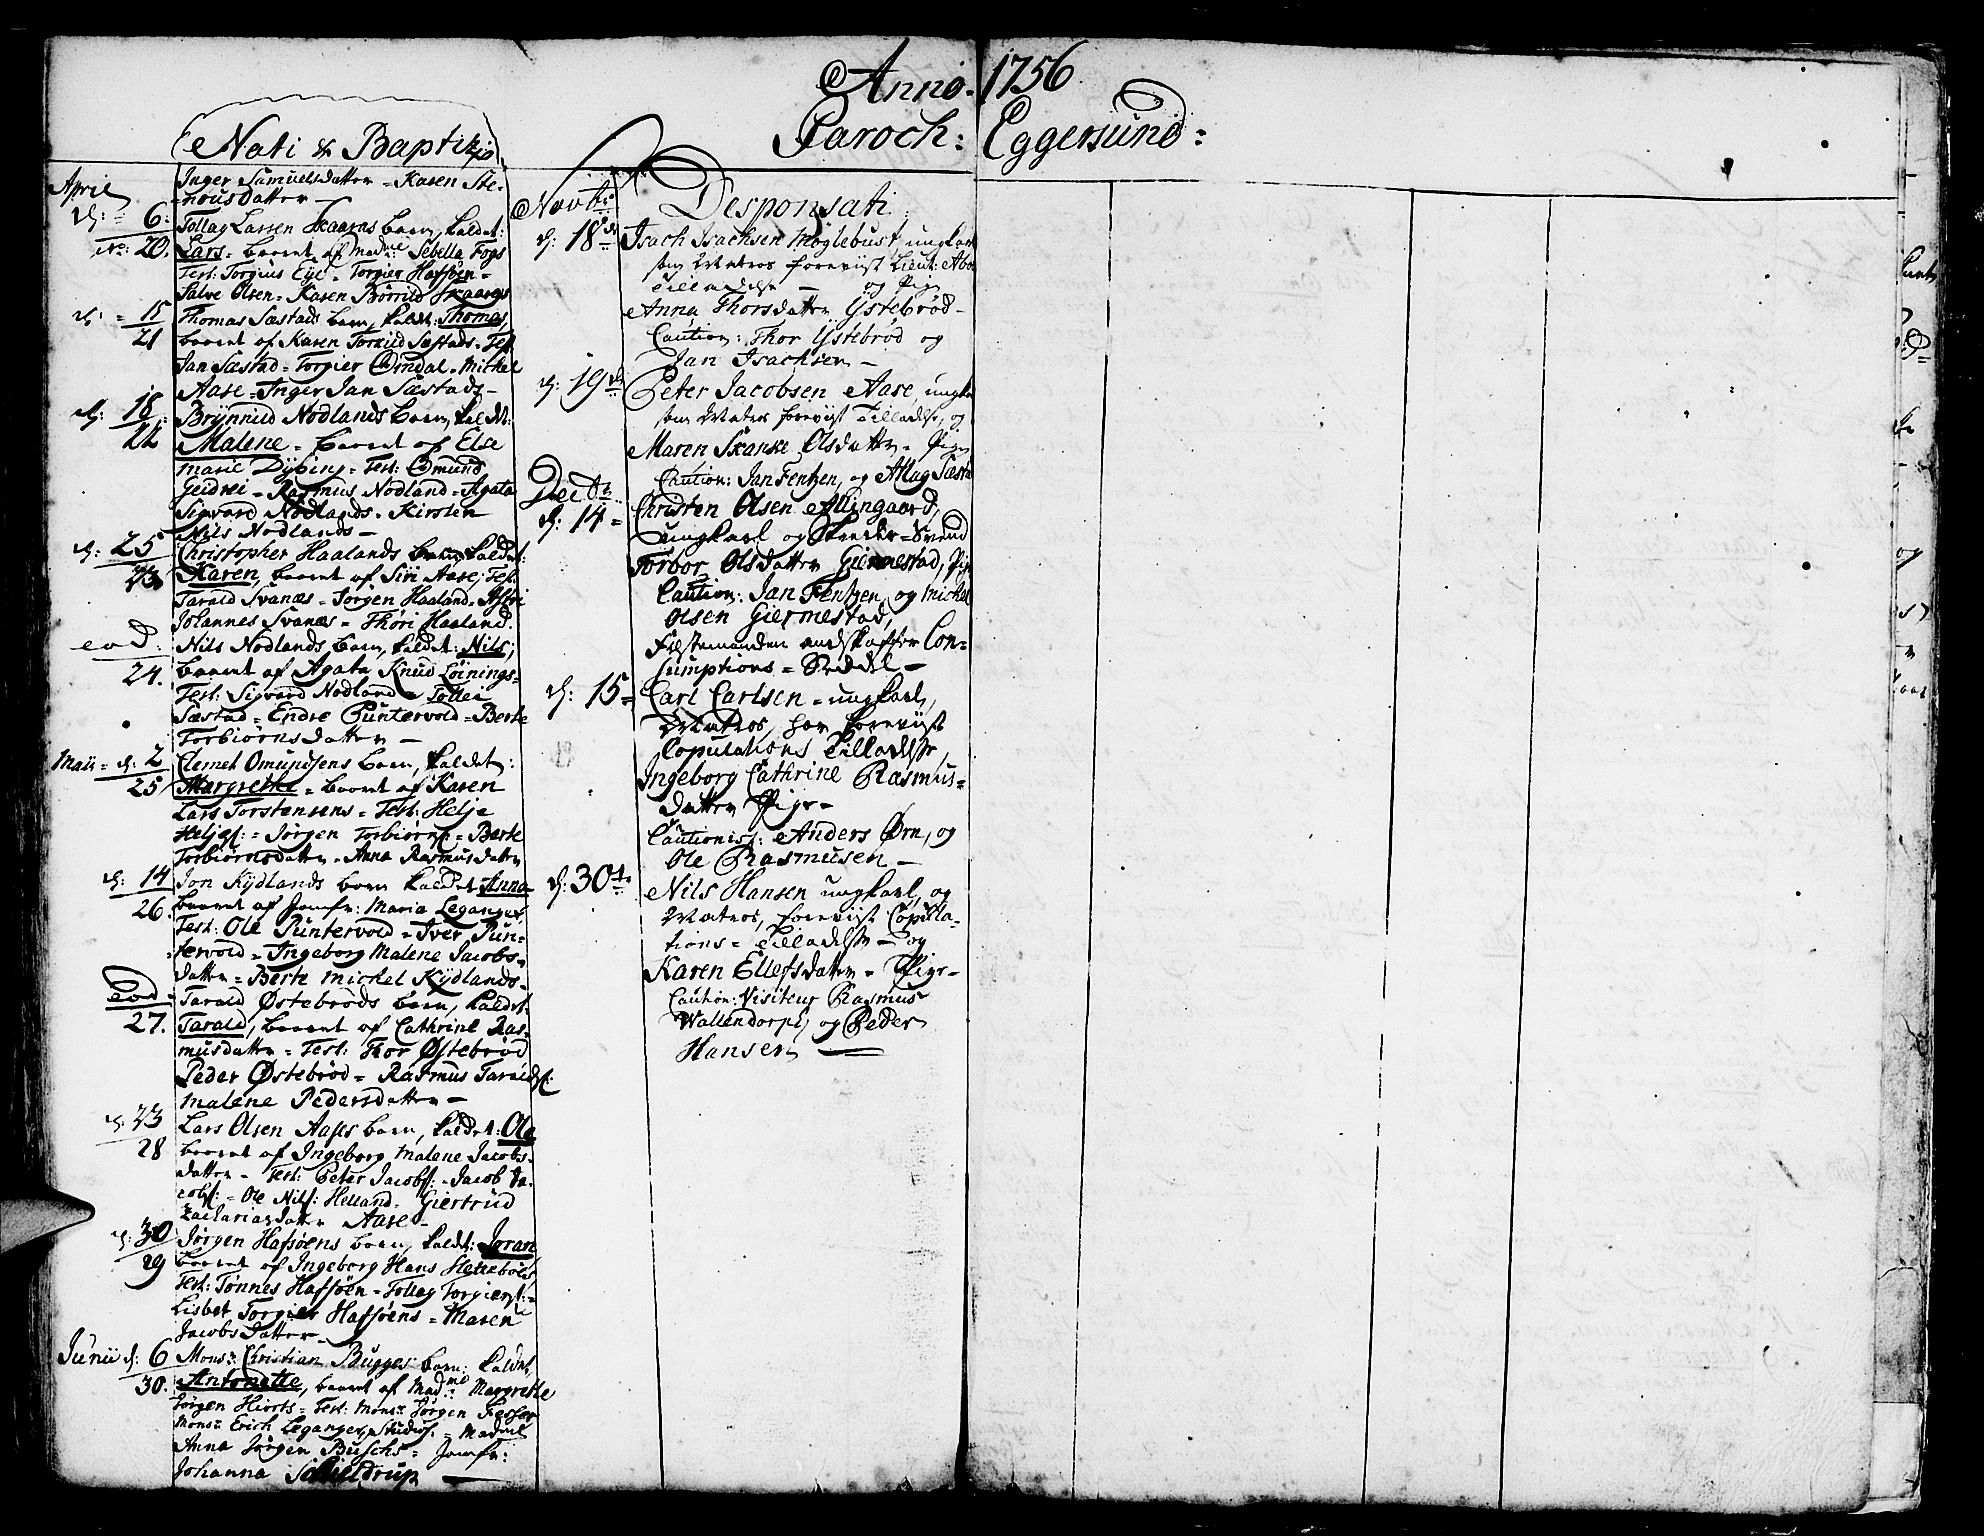 Anno. 1756
Paroch: Eggersund:
Nati & Baptiz
April
Inger Samuelsdatter = Karen Ste-
nousdatter —
d: 6: Tollag Larsen Skaaras barn, kaldet:
No: 20. Lars = baaret af Madme: Sebella Fogs
Test: Torgius Eye = Torgier Hafsøen =
Salve Olsen = Karen Børrild Skaaras
d: 15 Thomas Sæstads barn, kaldet: Thomas,
21 baaret af Karen Torkild Sæstads = Test
Jan Sæstad = Torgier Omdal = Michel
Aase = Inger Jan Sæstads —
d: 18 Brynnild Nodlands barn, kaldet:
22 Malene = baaret af Else
Marie Dybing = Test: Omund
Geidrei = Rasmus Nodland = Agata
Sigvard Nodlands = Kirsten
Nils Nodlands —
d: 25 Christopher Haalands barn, kaldet:
23 Karen, baaret af Siri Aase, Test:
Tarald Svanæs = Jørgen Haaland =
Johannes Svanæs = Thøri Haaland.
eod: Nils Nodlands barn, kaldet: Nils,
24. baaret af Agata Knud Løinings =
Test: Sigvard Nodland = Tollei
Sæstad = Endre Puntervold = Berte
Torbiørnsdatter —
Maii = d: 2 Clemet Omundsens barn, kaldet:
25 Margrethe = baaret af Karen
Lars Torstensens = Test: Helje
Heljes: = Jørgen Torbiørns: = Berte
Torbiørnsdatter = Anna Rasmusdatter
d: 14 Jon Kydlands barn kaldet Anna
26. baaret af Jomfr: Maria Leganger,
Test: Ole Puntervold = Iver Pun-
tervold = Ingeborg Malene Jacobs-
datter = Berte Michel Kydlands =
eod = Tarald Østebrøds barn, kaldet:
27. Tarald, baaret af Cathrine Ras-
musdatter = Test: Thor Østebrød
Peder Østebrød = Rasmus Taralds:
Malene Pedersdatter —
d: 23 Lars Olsen Aases barn, kaldet: Ole
28 baaret af Ingeborg Malene Jacobs-
datter = Test: Peter Jacobs: = Jacob Ja-
cobs: = Ole Nils: Helland = Giertrud
Zachariasdatter Aase =
d: 30 Jørgen Hafsøens barn, kaldet: Joran
29 baaret af Ingeborg Hans Hettebøls
Test: Tønnes Hafsøen = Tollag Torgiers: =
Lisbet Torgier Hafsøens = Maren
Jacobsdatter —
Junii d: 6 Monsr: Christian Bugges barn: kaldet,
30. Antonette, baaret af Madme: Margrethe
Jørgen Hiorts = Test: Monsr: Jørgen
Monsr Erich Leganger, Studios: = Madme
Anna Jørgen Buschs = Jomfr:
Johanna Schieldrup —
Novbr: Desponsati.
d: 18de Isach Isachsen Møglebust, ungkarl
som Matros foreviist Lieut:
Tilladelse — og Pige
Anna Thorsdatter Ystebrød =
Caution: Thor Ystebrød og
Jan Isachsen —
d: 19de Peter Jacobsen Aase, ungka
som Matros foreviist Tilladelse, og
Maren Skanke Olsdatter = Pige
Caution: Jan Fentzen, og Atlag Sæsta
Decbr:
d: 14 = Christen Olsen Allingaard,
ungkarl og Skreder = Svend
Torbor Olsdatter Giermestad, Pige
Caution: Jan Fentzen, og Michel
Olsen Giermestad,
Festemanden andskaffer Con-
sumptions = Seddel —
d: 15 = Carl Carlsen = ungkarl,
Matros, har foreviist
Copulations Tilladelse,
Ingeborg Cathrine Rasmus-
datter Pige =
Cautionis: Anders Ørn, og
Ole Rasmusen —
d: 30te Nils Hansen ungkarl, og
Matros, foreviist Copula-
tions = Tilladelse — og
Karen Ellefsdatter = Pige =
Caution: Visiteur Rasmus
Wallendorph og Peder
Hansen —